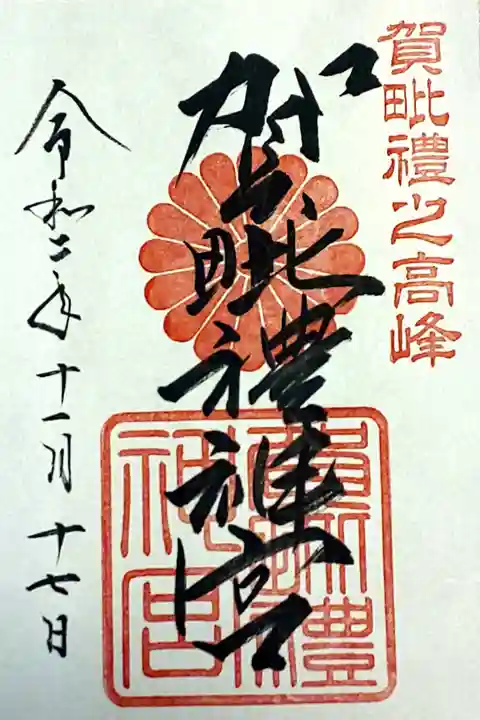 賀毗禮之高峰
賀毗禮神宮
令和二年十一月十七日